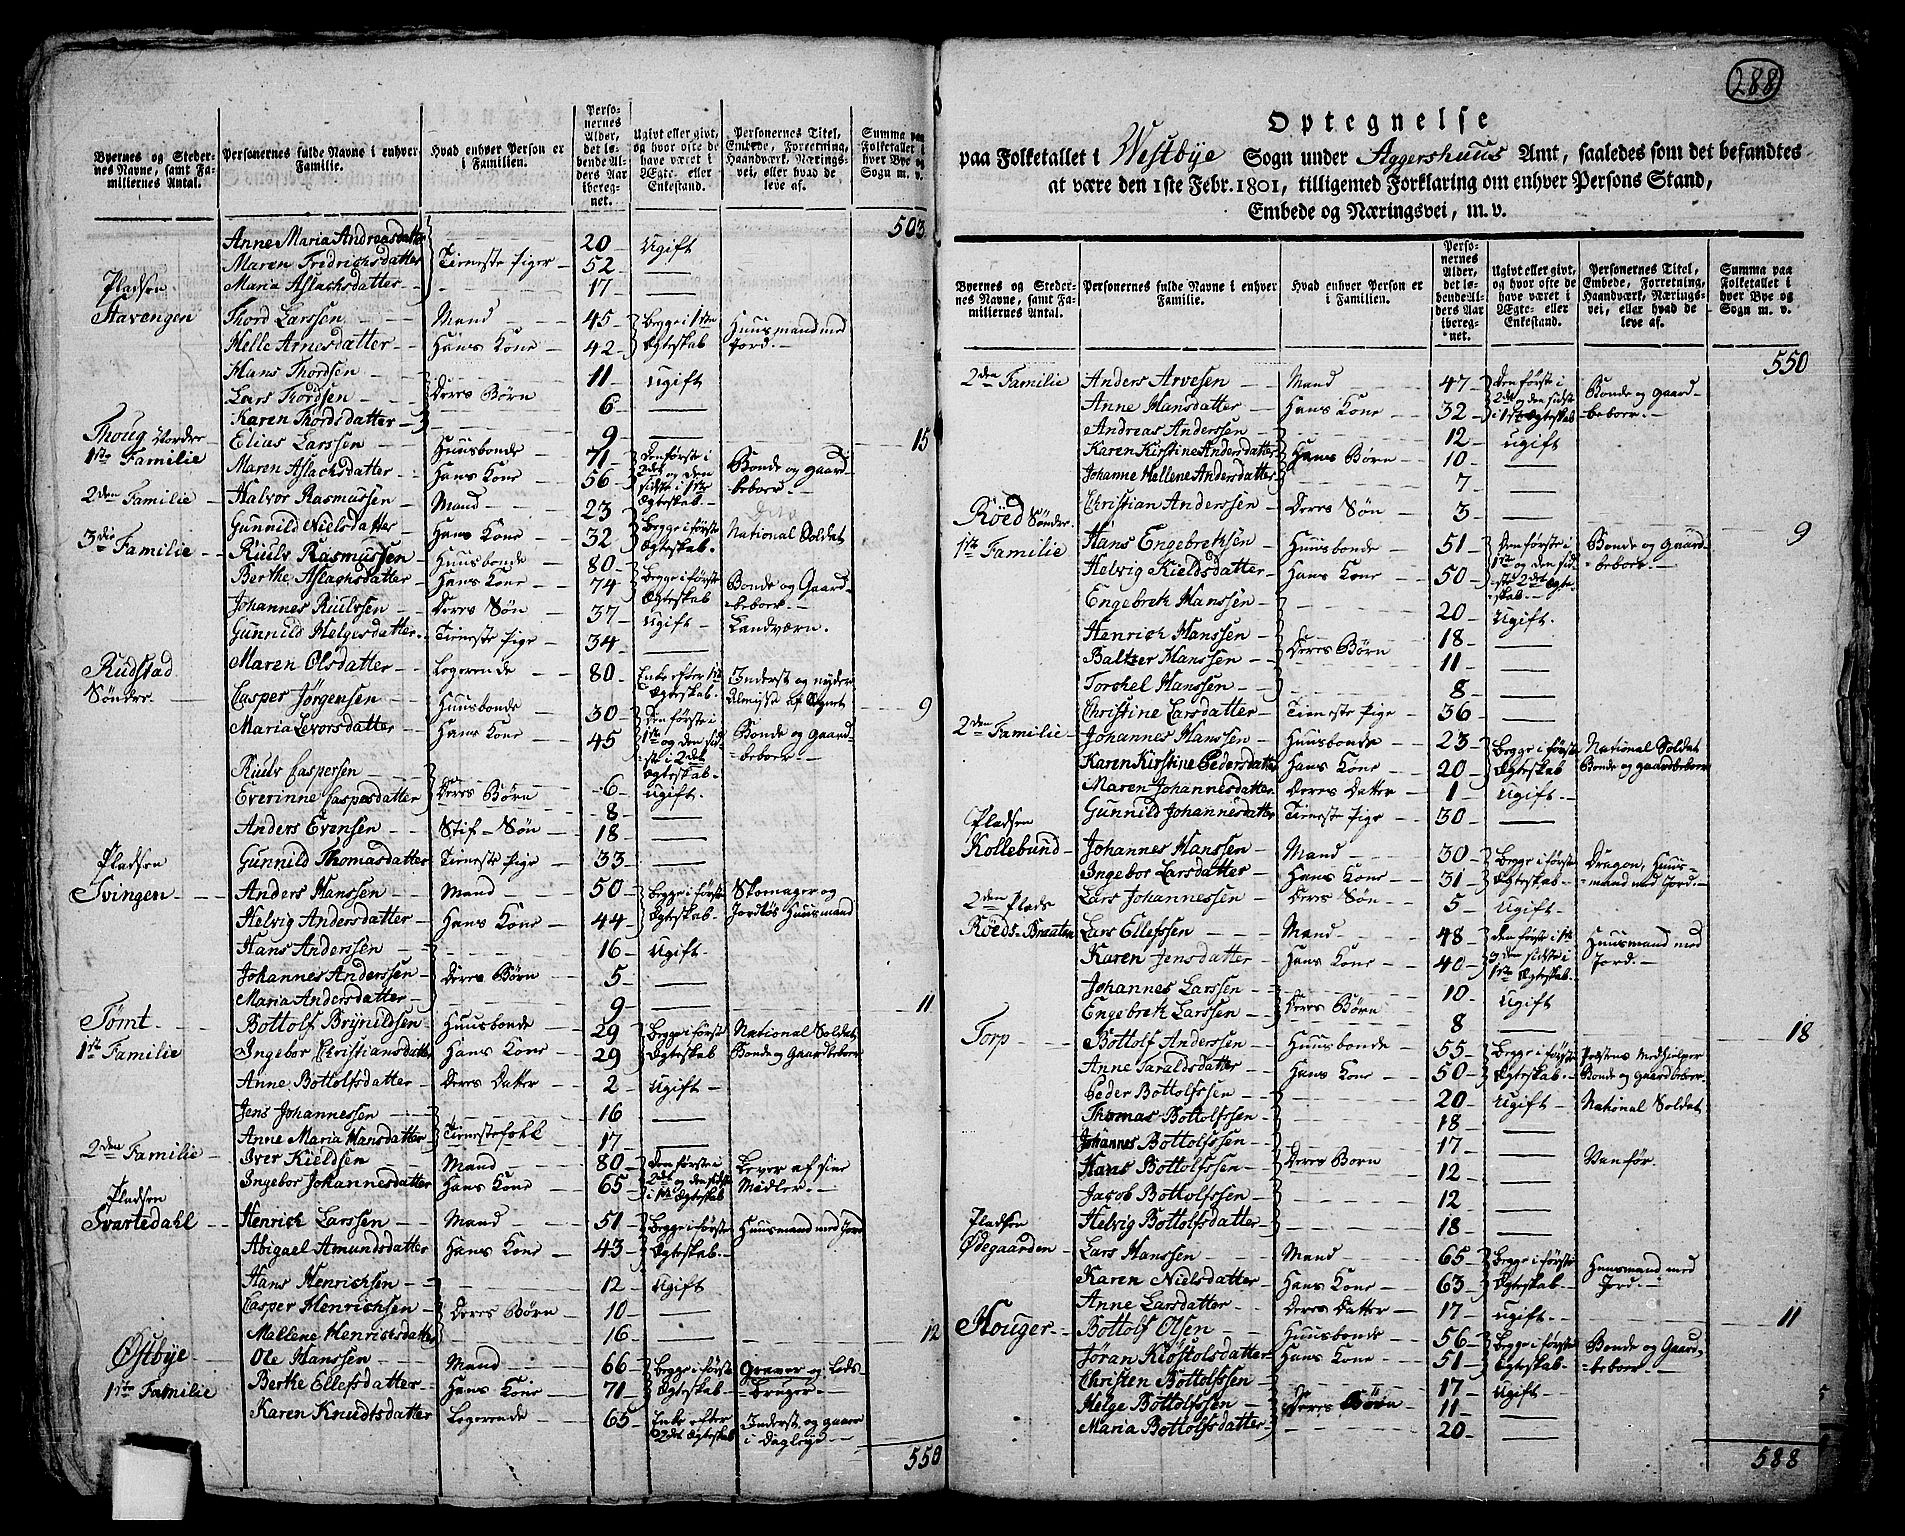 Byernes og Steder-
nes Navne, samt Fa-
miliernes Antal.
Personernes fulde Navne i enhver
Familie.
Hvad enhver Person er
i Familien.
Perso-
nernes
Alder,
det lø-
bende Al-
ders Aar
ibereg-
net.
Ugivt eller givt,
og hvor ofte de
have været i
Ægte- eller
Enkestand.
Personernes Titel,
Embede, Forretning,
Haandværk, Nærings-
vei, eller hvad de
leve af.
Summa paa
Folketallet i
hver Bye og
Sogn m. v.
503
Anne Maria Andreasdatter 20 - Ugift
Maren Fredrichsdatter Tieneste Piger - 52 -
Maria Aslachsdatter - 17 -
Pladsen
Stavengen Thord Larssen - Mand - 45 - Begge i 1ste Huusmand med
Helle Arnesdatter - Hans Kone - 42 - Ægteskab Jord. -
Hans Thordsen - 11 - Ugift
Lars Thordsen - Deres Børn 6 -
Karen Thordsdatter - 9 - 15
Thoug Nordre Elias Larssen Huusbonde - 71 - Den første i Bonde og Gaard-
1ste Familie Maren Aslachsdatter Hans Kone - 56 - 2det og den sidste i 1ste Ægteskab. beboer. -
2den Familie Halvor Rasmussen Mand - 23 - dito
Gunnild Nielsdatter Hans Kone - 32 - Begge i første Ægteskab. National Soldat
3die Familie - Ruulv Rasmussen Huusbonde - 80 -
Berthe Aslachsdatter Hans Kone - 74 - Begge i første Ægteskab Bonde og Gaard-beboer. -
Johannes Ruulvsen Deres Søn - 37 - Ugift - Landværn.
Gunnild Helgesdatter Tieneste Pige - 34 -
Rudstad Maren Olsdatter - Logerende - 80 - Enke efter 1ste Ægteskab. Inderst og nyder Almisse af Sognet
Søndre. - Casper Jørgensen Huusbonde - 30 - Den første i 9
Maria Levorsdatter Hans Kone - 45 - 1ste og den sidste i 2det Ægteskab. Bonde og Gaard-beboer. -
Ruulv Caspersen - 6 - Ugift.
Everinne Caspersdatter Deres Børn - 8 -
Anders Evensen - Stif-Søn - 18 -
Pladsen Gunnild Thomasdatter Tieneste Pige - 33 -
Svingen - Anders Hanssen - Mand - 50 - Begge i første Skomager og
Helvig Andersdatter - Hans Kone - 44 - Ægteskab. Jordløs Huusmand
Hans Anderssen - 16 - Ugift.
Johannes Anderssen - Deres Børn 5 -
Maria Andersdatter - 9 - 11
Tømt - Bottolf Brynildsen - Huusbonde - 29 Begge i første National Soldat
1ste Familie Ingebor Christiansdatter Hans Kone - 29 Ægteskab Bonde og Gaardbeboer
Anne Bottolfsdatter - Deres Datter - 2 - Ugift -
Jens Johannessen - 16 -
Anne Maria Hansdatter Tienestefolk 17 -
2den Familie - Iver Kieldsen Mand - 80 - Den første i Lever af sine
Ingebor Johannesdatter Hans Kone - 65 - 2det og den sidste i 1ste Ægteskab Midler. -
Pladsen
Svartedahl - Henrich Larssen - Mand - 51 - Begge i første Huusmand med Jord
Abigael Amundsdatter Hans Kone - 43 - Ægteskab. -
Hans Henrichsen - 12 - Ugift
Casper Henrichsen - Deres Børn - 10 -
Mallene Henrichsdatter - 16 - 12
Østbye - Ole Hanssen - Mand - 66 - Begge i første Graver og Leds-
1ste Familie Berthe Ellefsdatter - Hans Kone - 71 - Ægteskab - -bruger -
Karen Knudtsdatter Logerende - 65 - Enke efter 2det Ægteskab Inderst og gaaer i Dagleye -
550
288
Optegnelse
paa Folketallet i Westbye Sogn under Aggershuus Amt, saaledes som det befandtes
at være den 1ste Febr. 1801, tilligemed Forklaring om enhver Persons Stand,
Embede og Næringsvei, m. v.
Byernes og Steder-
nes Navne, samt Fa-
miliernes Antal.
Personernes fulde Navne i enhver
Familie.
Hvad enhver Person er
i Familien.
Perso-
nernes
Alder,
det lø-
bende Al-
ders Aar
ibereg-
net.
Ugivt eller givt,
og hvor ofte de
have været i
Ægte- eller
Enkestand.
Personernes Titel,
Embede, Forretning,
Haandværk, Nærings-
vei, eller hvad de
leve af.
Summa paa
Folketallet i
hver Bye og
Sogn m. v.
550
2den Familie Anders Arvesen - Mand - 47 - Den første i Bonde og Gaard-
Anne Hansdatter - Hans Kone - 32 - 2det og den sidste i 1ste Ægteskab beboer. -
Andreas Anderssen - 12 - Ugift
Karen Kirstine Andersdatter Hans Børn - 10 -
Johanne Hellene Andersdatter - 7 -
Christian Anderssen - Deres Søn - 3 -
Röed Söndre. 9
1ste Familie Hans Engebretsen - Huusbonde - 51 - Den første i Bonde og Gaard-
Helvig Kieldsdatter - Hans Kone - 50 - 1ste og den sidste 2det Ægteskab. - -beboer. -
Engebret Hanssen - 20 - Ugift.
Henrich Hanssen - Deres Børn 18 -
Baltzer Hanssen - 11 -
Torchel Hanssen - 8 -
Christine Larsdatter - Tieneste Pige - 36 -
2den Familie - Johannes Hanssen - Huusbonde - 23 - Begge i første National Soldat
Karen Kirstine Pedersdatter Hans Kone - 20 - Ægteskab Bonde og Gaardbeboer
Maren Johannesdatter Deres Datter - 1 - Ugift. -
Gunnild Johannesdatter Tieneste Pige - 30 -
Pladsen
Kollebund - Johannes Hanssen - Mand - 30 - Begge i første Dragon, Huus-
Ingebor Larsdatter - Hans Kone - 31 - Ægteskab. - -mand med Jord. -
2den Plads Lars Johannessen - Deres Søn - 5 - Ugift -
Röeds-Brauten Lars Ellefssen - Mand - 48 - Den første i 1ste Huusmand med
Karen Jensdatter - Hans Kone - 40 - den sidste i 1ste Ægteskab. Jord. -
Johannes Larssen - 10 - Ugift
Engebret Larssen - Deres Børn 8 -
Torp - Bottolf Anderssen - Huusbonde - 55 - Begge i første Præstens Medhjelper 18
Anne Taraldsdatter - Hans Kone - 50 - Ægteskab. - Bonde og Gaardbeboer.
Peder Bottolfssen - 20 - Ugift - National Soldat
Thomas Bottolfssen - 18 -
Johannes Bottolfssen - 17 -
Hans Bottolfssen - Deres Born 12 - Vanför.
Jacob Bottolfssen - 12 -
Helvig Bottolfsdatter - 18 -
Pladsen
Ødegaarden - Lars Hanssen - Mand - 65 - Begge i første Huusmand med
Karen Nielsdatter - Hans Kone - 63 - Ægteskab - Jord. -
Anne Larsdatter - Deres Datter - 17 - Ugift. -
Houger - Bottolf Olsen Huusbonde - 56 - Begge i første Bonde og Gaard- 11
Jøran Kiøstolsdatter Hans Kone - 51 - Ægteskab. - -beboer. -
Christen Bottolfssen - 17 - Ugift -
Helge Bottolfssen - Deres Børn - 11 -
Maria Bottolfsdatter - 20 -
588